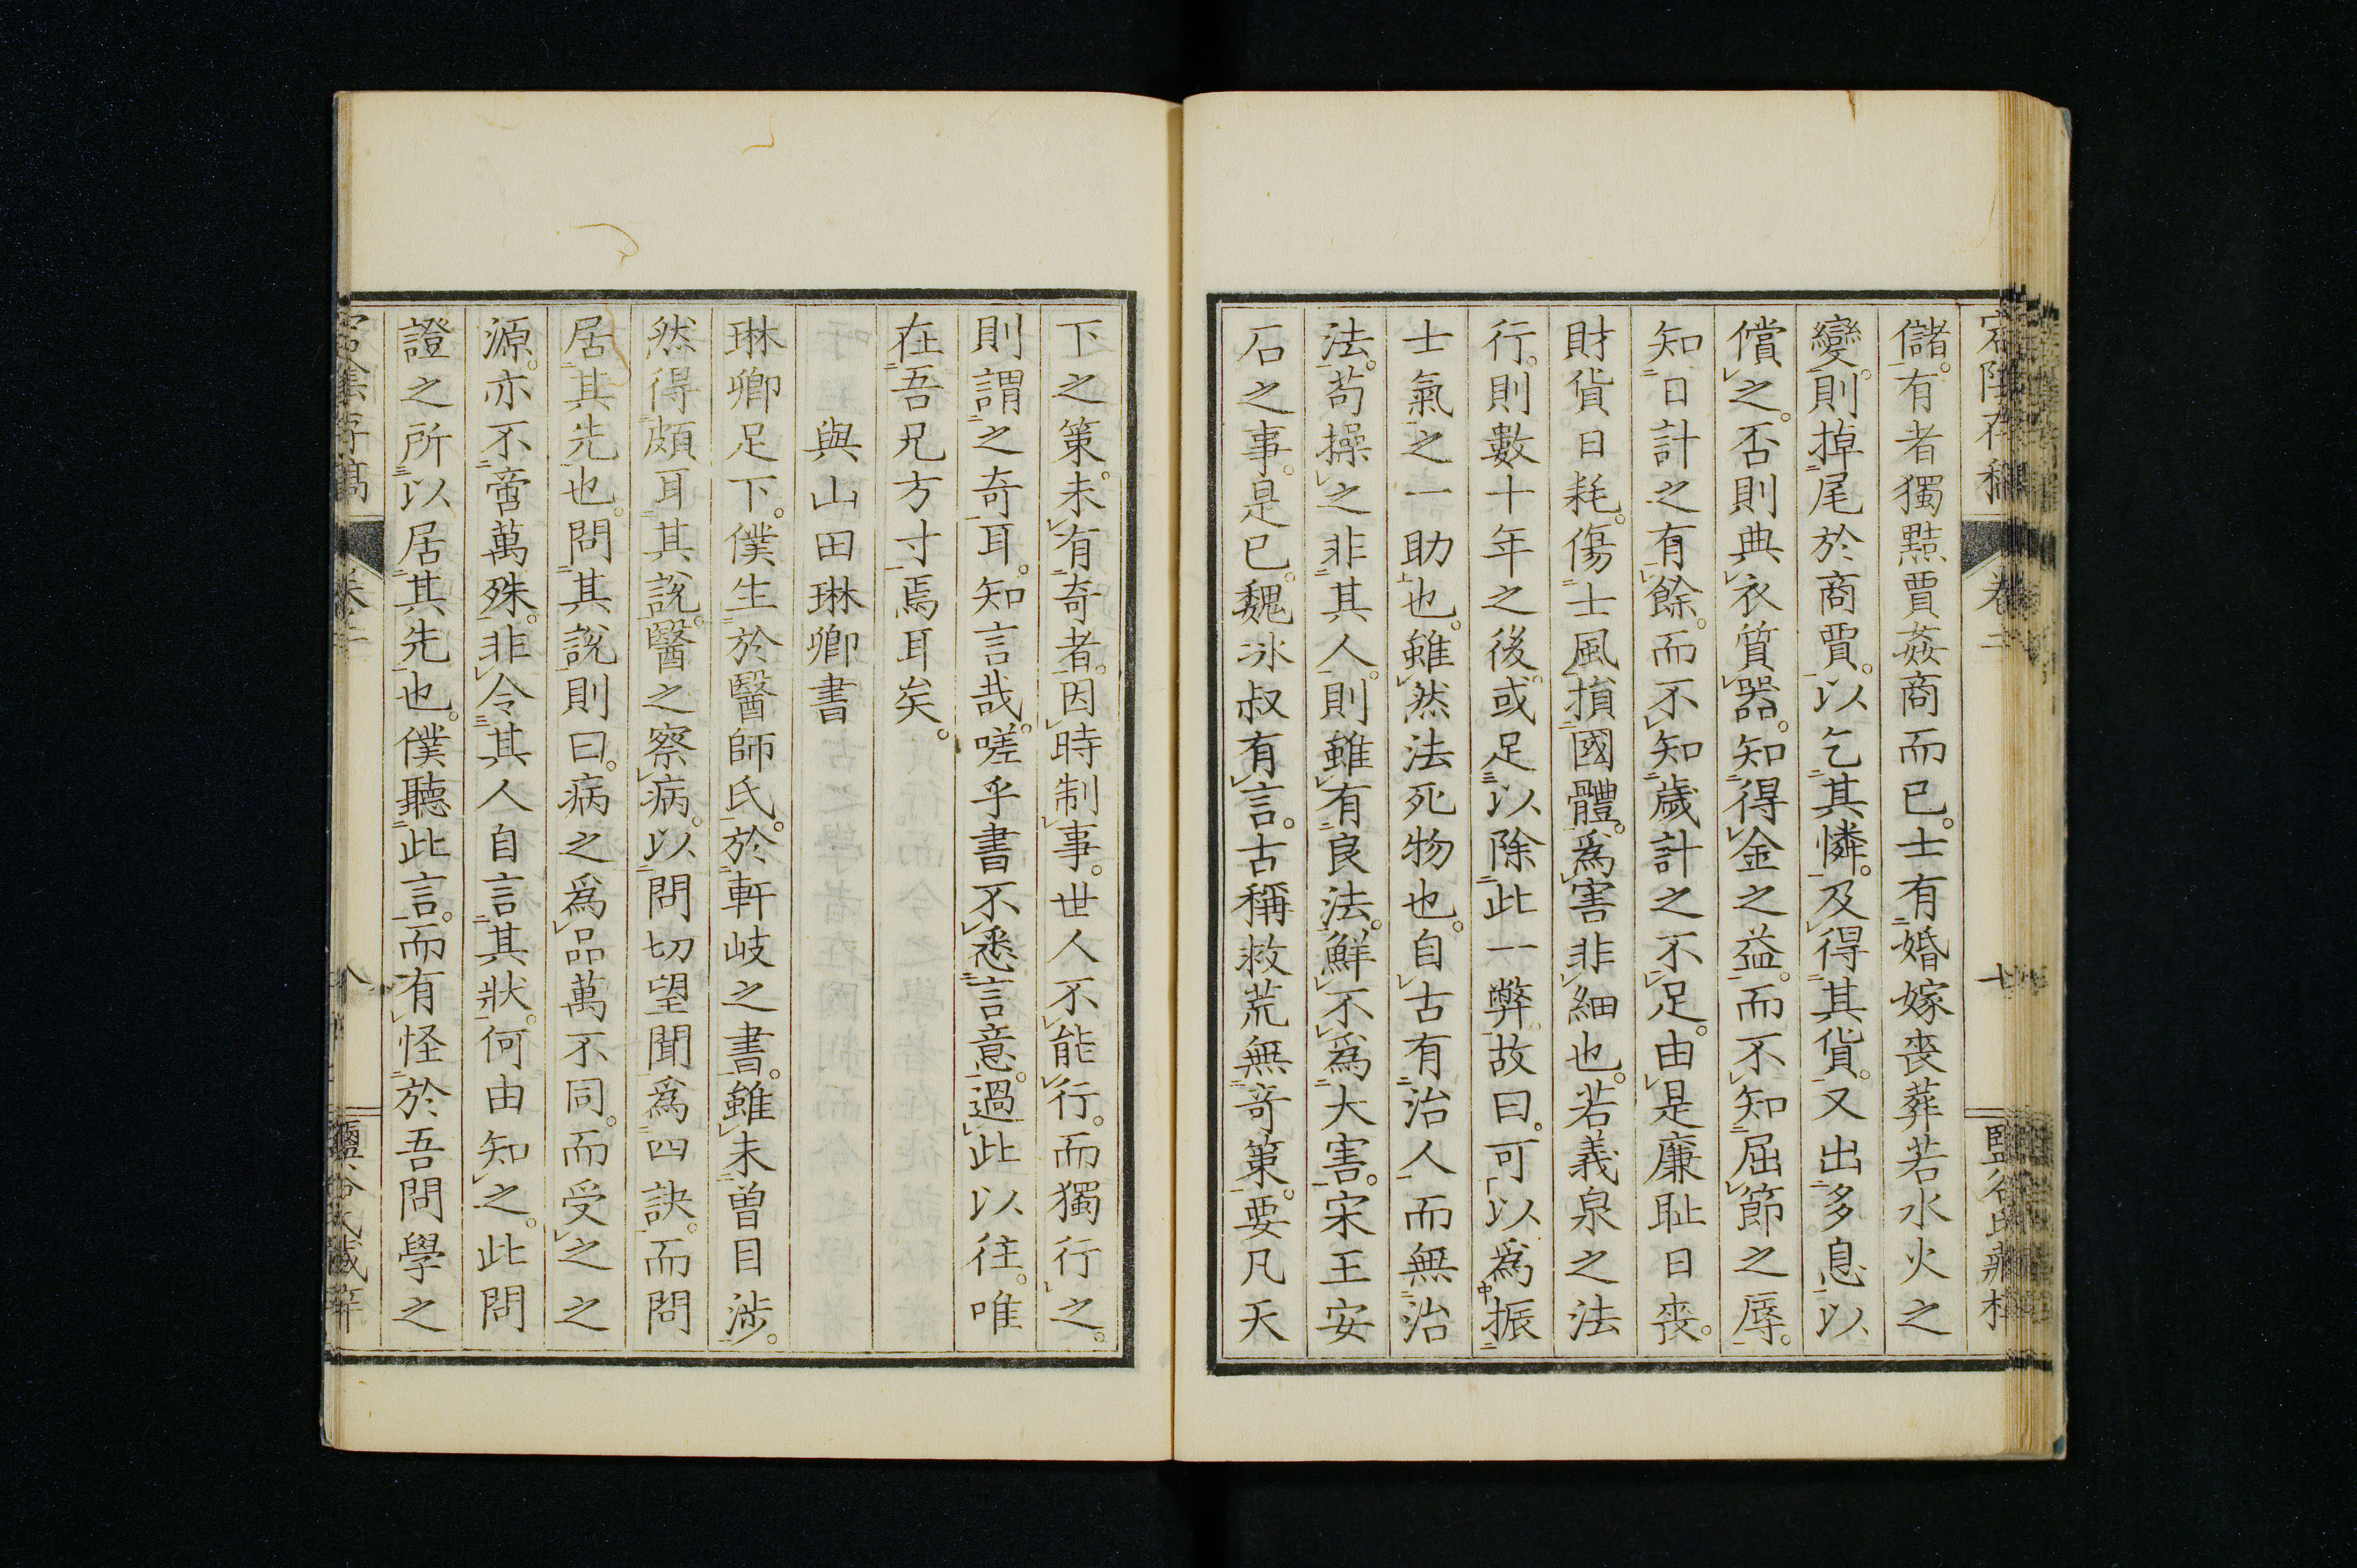 儲。有者獨黠賈姦商而已。士有婚嫁喪葬若水火之
變。則掉尾於商賈。以乞其憐。及得其貨。又出多息以
償之。否則典衣質器。知得金之益。而不知屈節之辱。
知日計之有餘。而不知歲計之不足。由是廉耻日喪。
財貨日耗。傷士風損國體。爲害非細也。若義泉之法
行。則數十年之後。或足以除此一弊。故曰。可以爲振
士氣之一助也。雖然法死物也。自古有治人而無治
法。苟操之非其人。則雖有良法。鮮不爲大害。宋王安
石之事。是已。魏冰叔有言。古稱救荒無奇策。要凡天
下之策。未有奇者。因時制事。世人不能行。而獨行之。
則謂之奇耳。知言哉。嗟乎書不悉言意。過此以往。唯
在吾兄方寸焉耳矣。
與山田琳卿書
琳卿足下。僕生於醫師氏。於軒岐之書。雖未曾目涉。
然得頗耳其說。醫之察病。以問切望聞爲四訣。而問
居其先也。問其說則曰。病之爲品萬不同。而受之之
源。亦不啻萬殊。非令其人自言其狀。何由知之。此問
證之所以居其先也。僕聽此言。而有怪於吾問學之
卷二